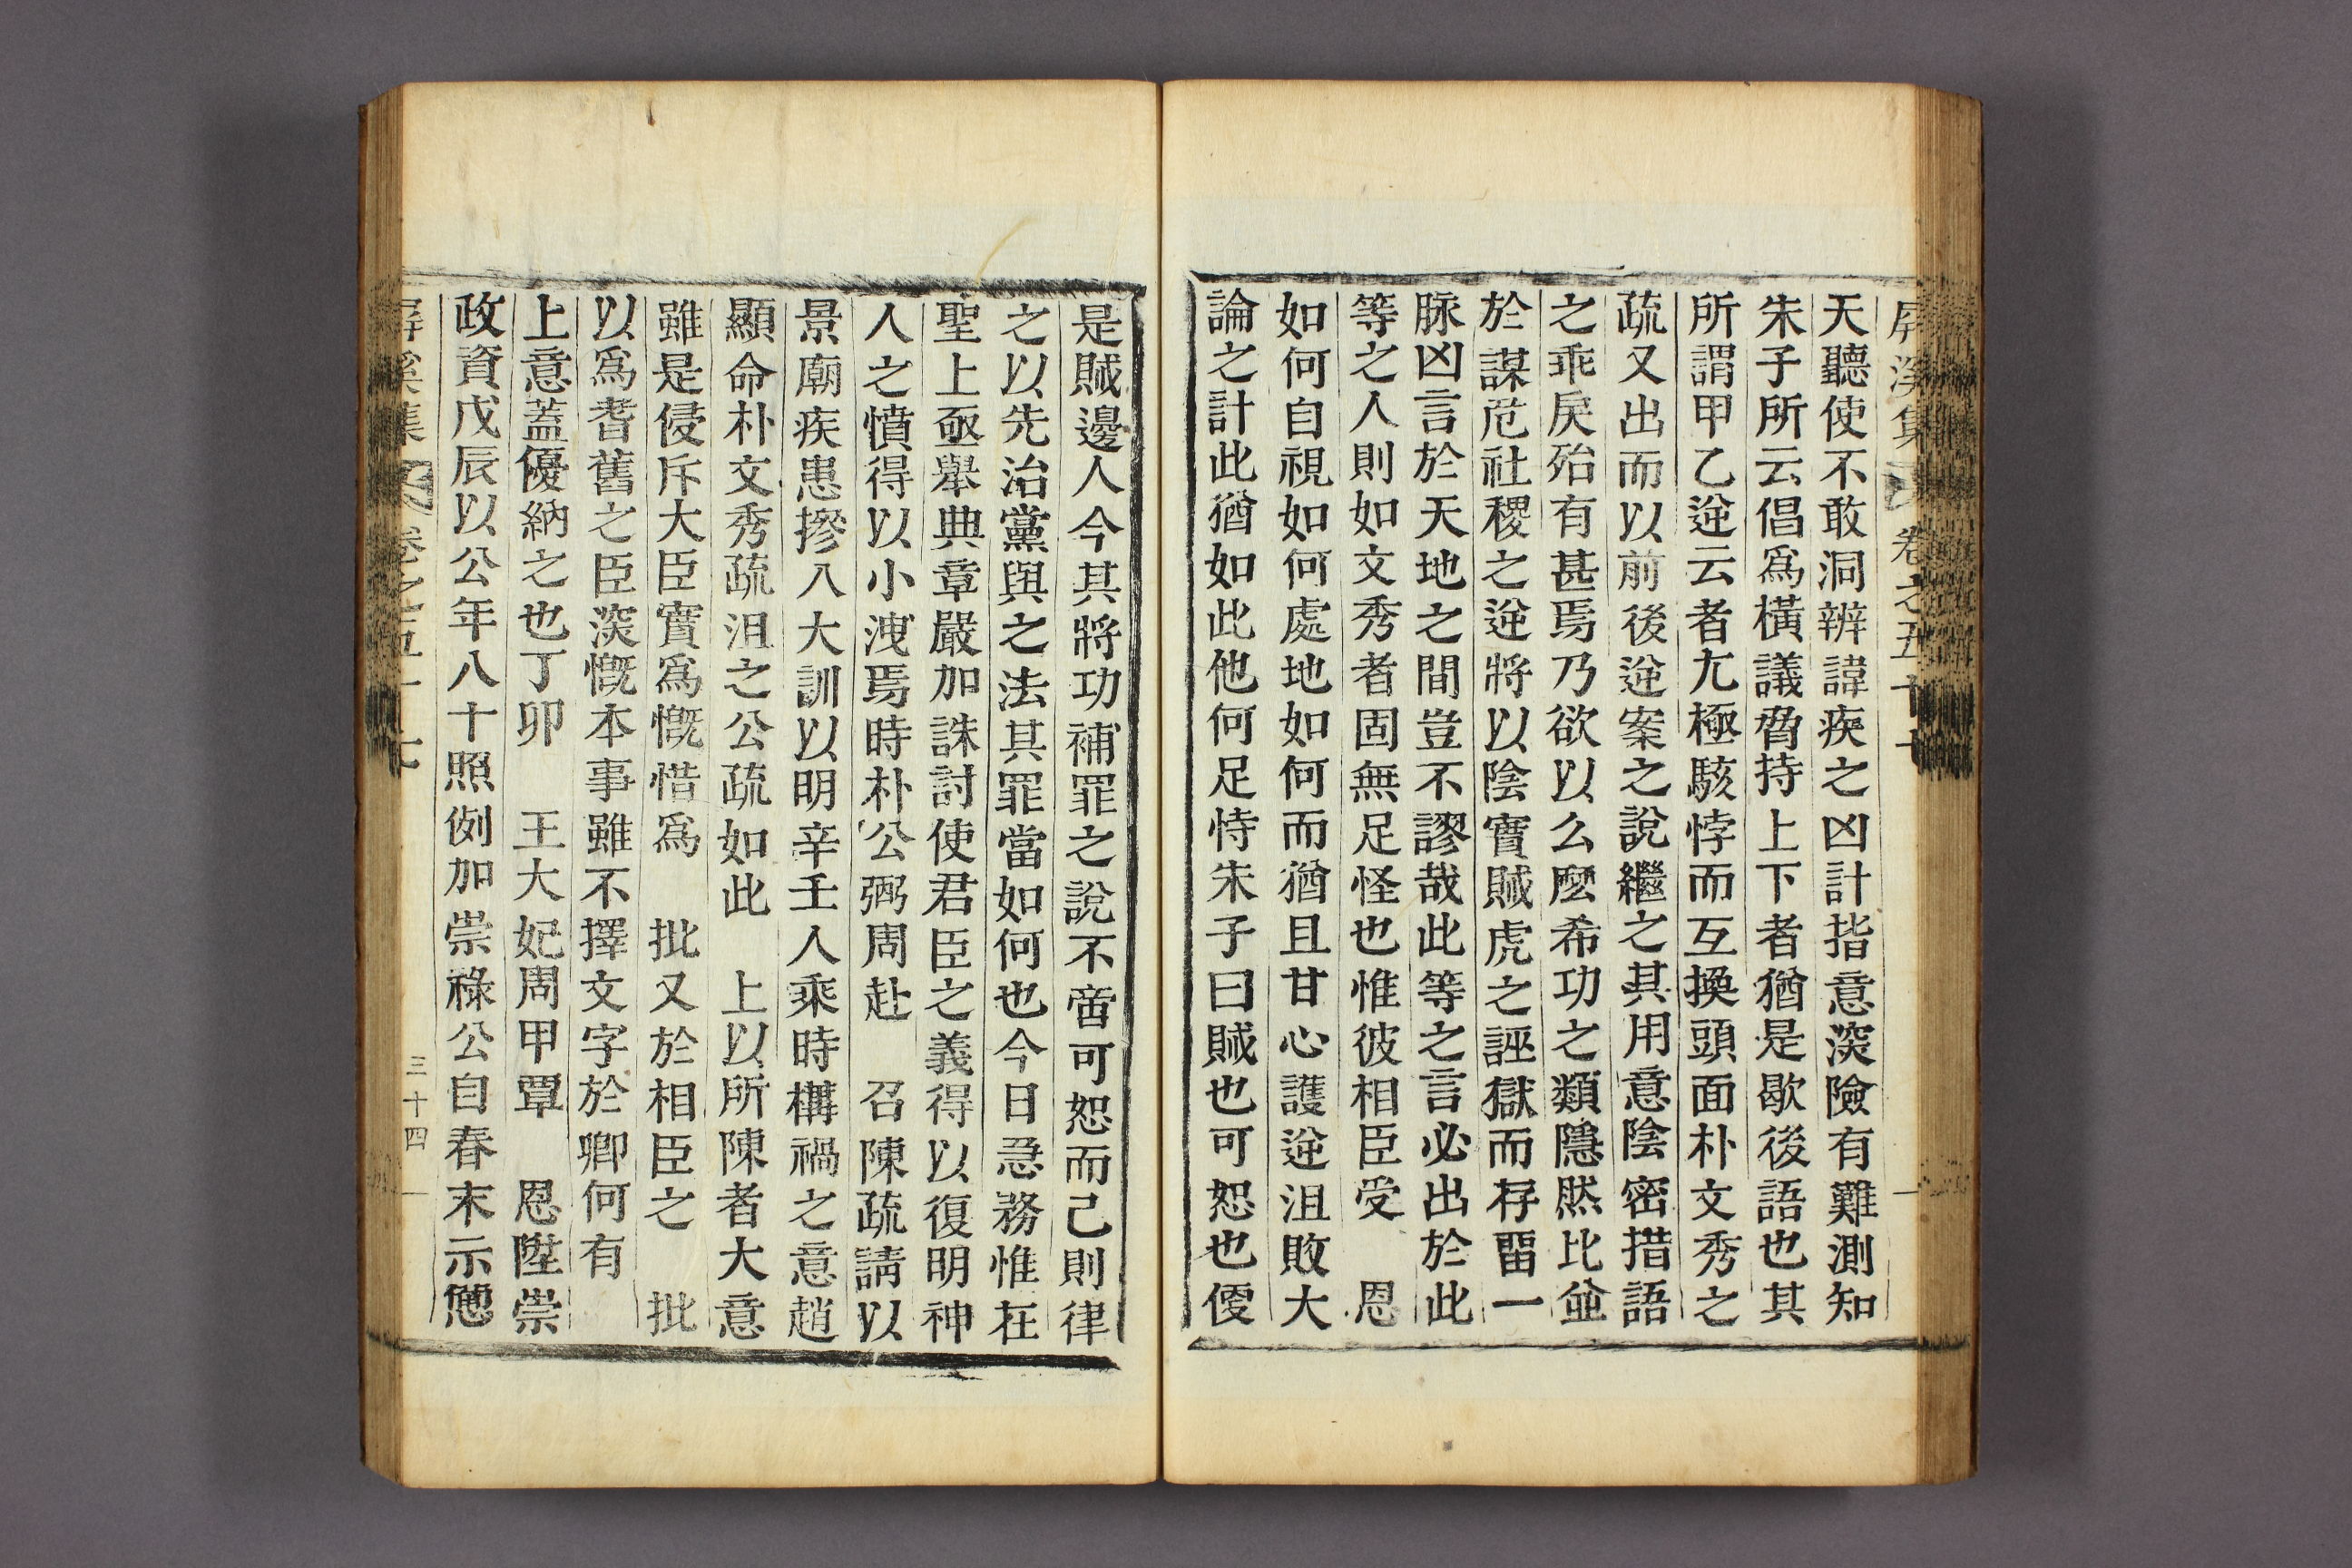 屏溪集 卷之五十七
天聽使不敢洞辨諱疾之凶計指意深險有難測知
朱子所云倡爲橫議脅持上下者猶是歇後語也其
所謂甲乙逆云者尤極駭悖而互換頭面朴文秀之
疏又出而以前後逆案之說繼之其用意陰密措語
之乖戾殆有甚焉乃欲以么麽希功之類隱然比並
於謀危社稷之逆將以陰實賊虎之誣獄而存畱一
脉凶言於天地之間豈不謬哉此等之言必出於此
等之人則如文秀者固無足怪也惟彼相臣受 恩
如何自視如何處地如何而猶且甘心護逆沮敗大
論之計此猶如此他何足恃朱子曰賊也可恕也便
是賊邊人今其將功補罪之說不啻可恕而已則律
之以先治黨與之法其罪當如何也今日急務惟在
聖上亟擧典章嚴加誅討使君臣之義得以復明神
人之憤得以小洩焉時朴公弼周赴 召陳疏請以
景廟疾患摻入大訓以明辛壬人乘時構禍之意趙
顯命朴文秀疏沮之公疏如此 上以所陳者大意
雖是侵斥大臣實爲慨惜爲 批又於相臣之 批
以爲耆舊之臣深慨本事雖不擇文字於卿何有
上意蓋優納之也丁卯 王大妃周甲覃 恩陞崇
政資戊辰以公年八十照例加崇祿公自春末示憊
屏溪集 卷之五十七 三十四